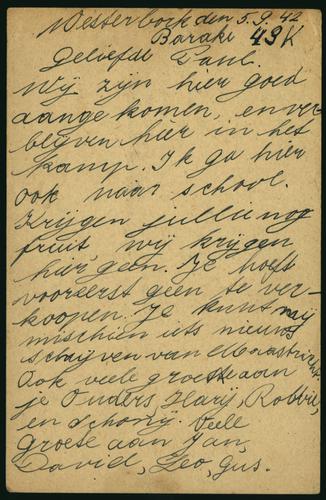 Westerbork den 5.9.42
Barak 49K
Geliefde Paul.
Wij zijn hier goed
aangekomen, en ver
blijven hier in het
kamp. Ik ga hier
ook naar school.
Krijgen jullie nog
fruit, wij krijgen
hier geen. Je hoeft
voorderst geen te ver-
koopen. Je kunt mij
mischien iets nieuws
schrijven van Maastricht.
Ook veele groeten aan
je Ouders, Harij, Robbie,
en Schonij. Veele
groete aan Jan,
David, Leo, Gus.